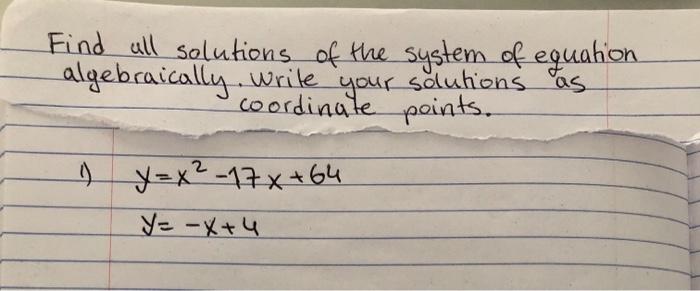 Find all solutions of the system of equation
algebraically. Write your solutions as
coordinate points.
1) y=x²-17x+64
y= -x+4